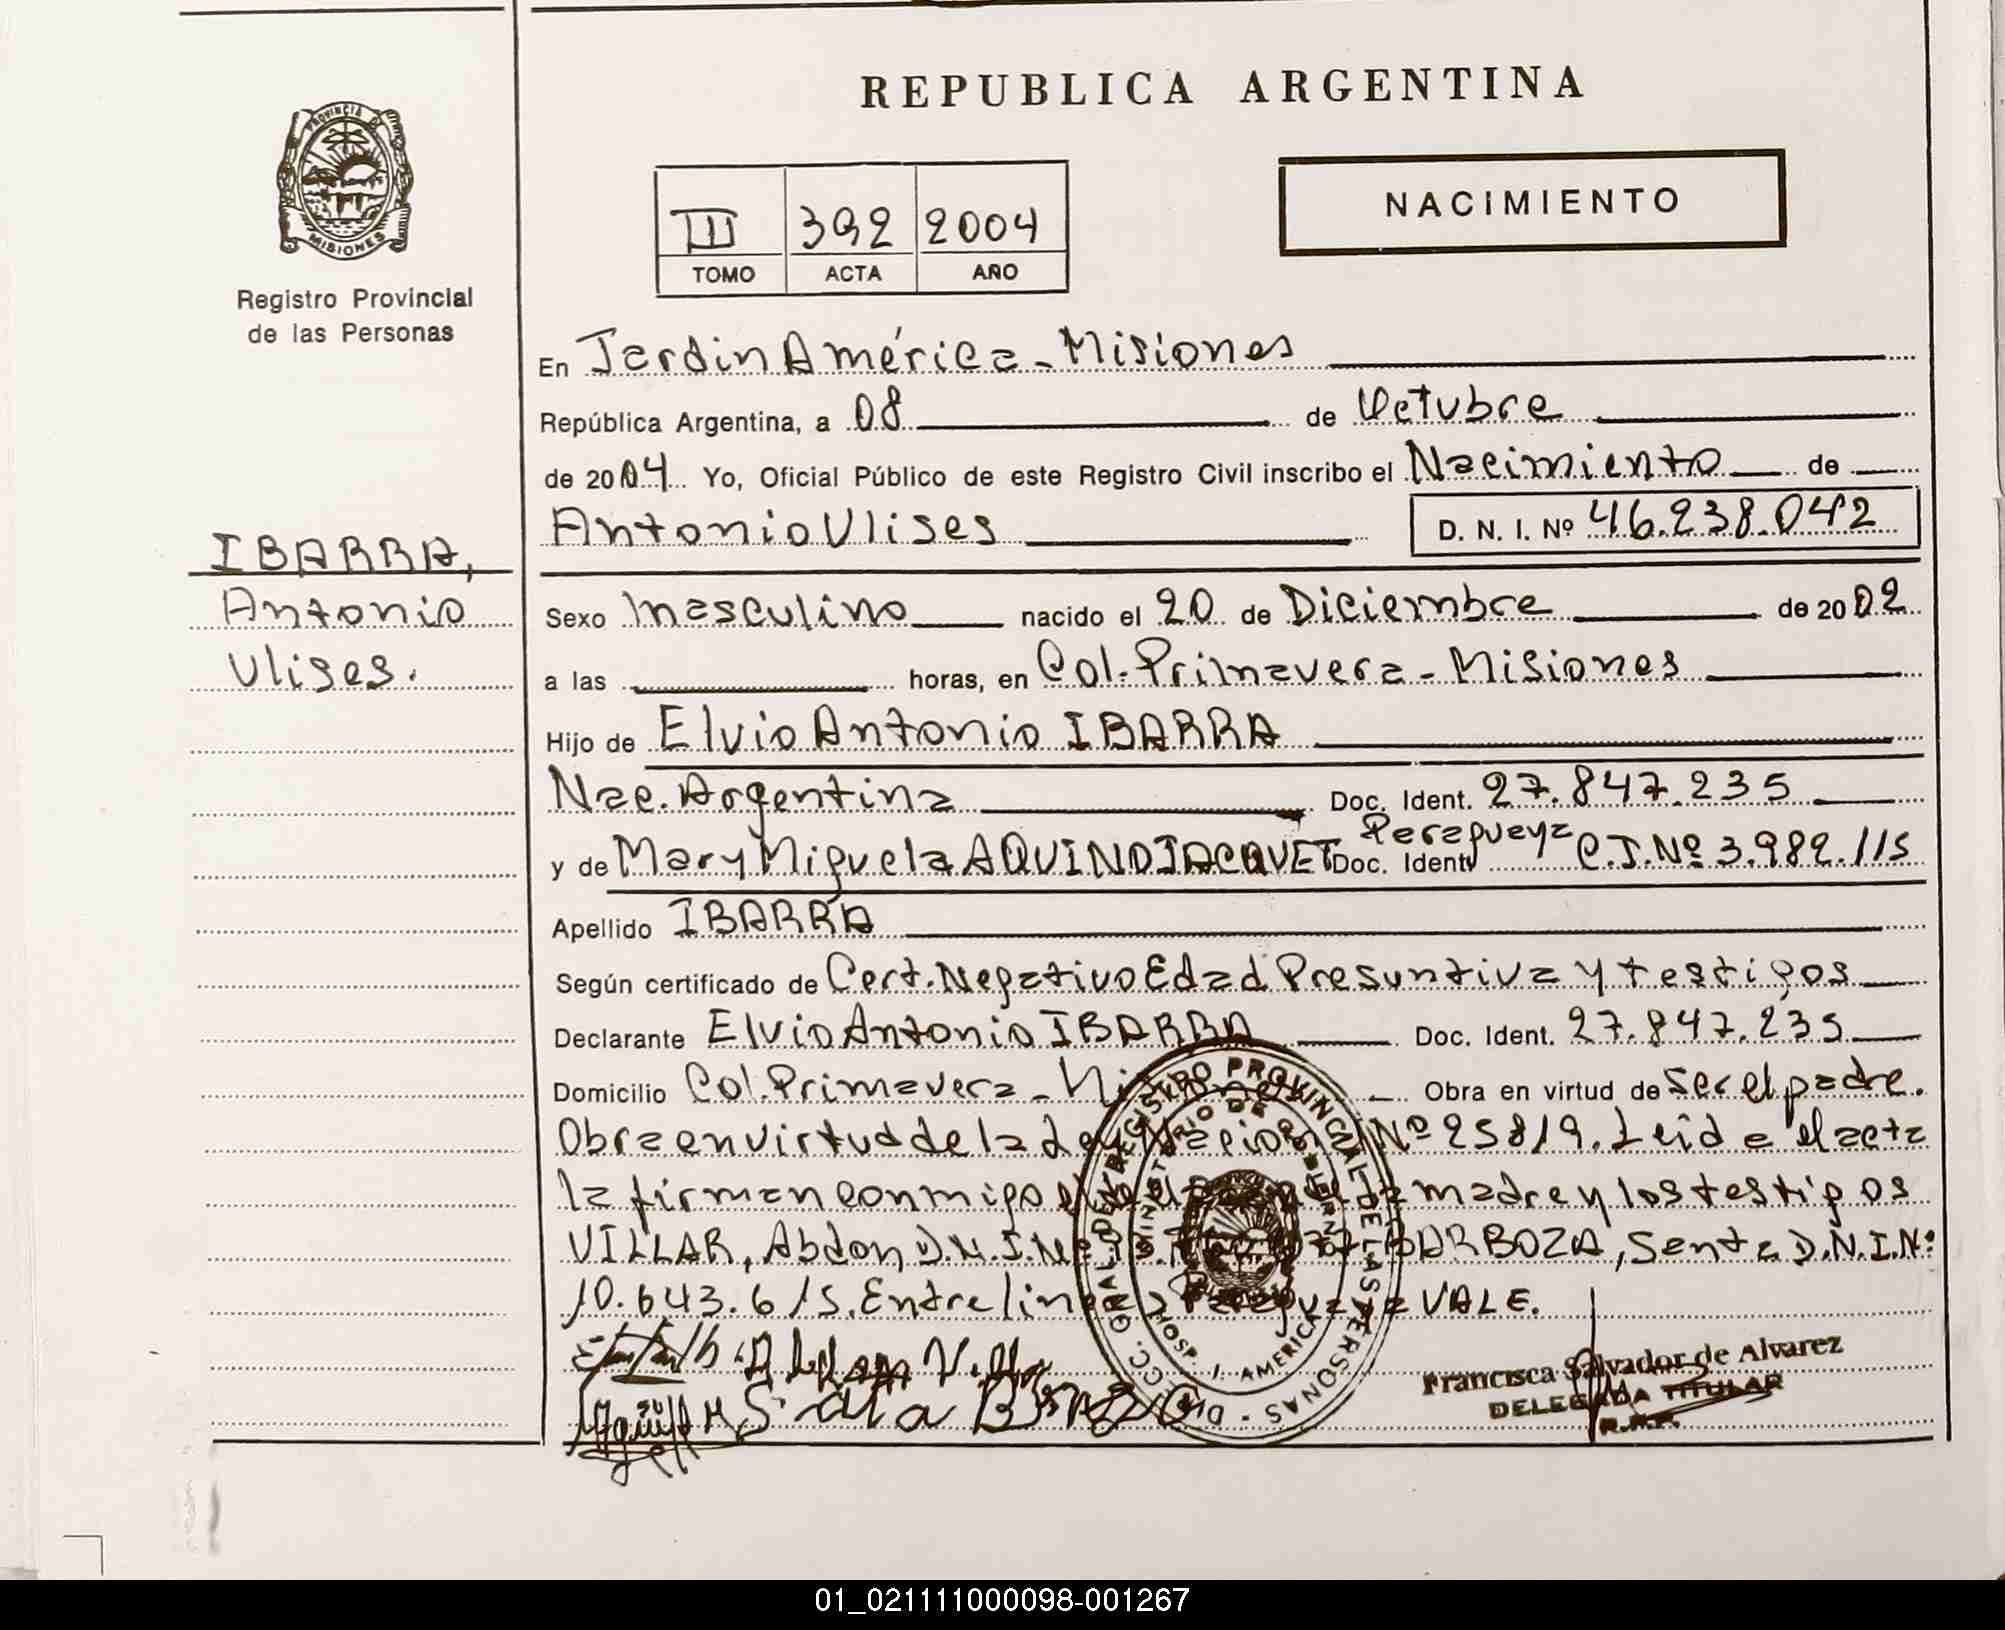 REPUBLICA ARGENTINA
PROVINCIA DE
MISIONES
Registro Provincial
de las Personas
III 392 2004
TOMO ACTA AÑO
NACIMIENTO
En Jardin América - Misiones
República Argentina, a 08 de Octubre
de 2004 Yo, Oficial Público de este Registro Civil inscribo el Nacimiento de
Antonio Ulises D. N. I. Nº 46.238.042
IBARRA,
Antonio
Ulises.
Sexo Masculino nacido el 20 de Diciembre de 2002
a las horas, en Col. Primavera - Misiones
Hijo de Elvio Antonio IBARRA
Nac. Argentina Doc. Ident. 27.847.235
Paraguaya
y de Mary Miguela AQUINO JACQUET Doc. Ident. C.I.Nº 3.982.115
Apellido IBARRA
Según certificado de Cert. Negativo Edad Presuntiva y testigos
Declarante Elvio Antonio IBARRA Doc. Ident. 27.847.235
Domicilio Col. Primavera - Misiones Obra en virtud de ser el padre.
Obra en virtud de la Ley Nacional Nº 25819. Leid a el acta
la firman conmigo el la madre y los testigos
VILLAR, Abdon, D.N.I.Nº BARBOZA, Senta D.N.I.Nº
10.643.615. Entre lineas Paraguaya VALE.
DIRECC. GRAL. DEL REGISTRO PROVINCIAL DE LAS PERSONAS
MINISTERIO DE GOBIERNO
HOSP. J. AMERICA
Abdon Villar
Francisca Salvador de Alvarez
DELEGADA TITULAR
R.P.P.
01_021111000098-001267